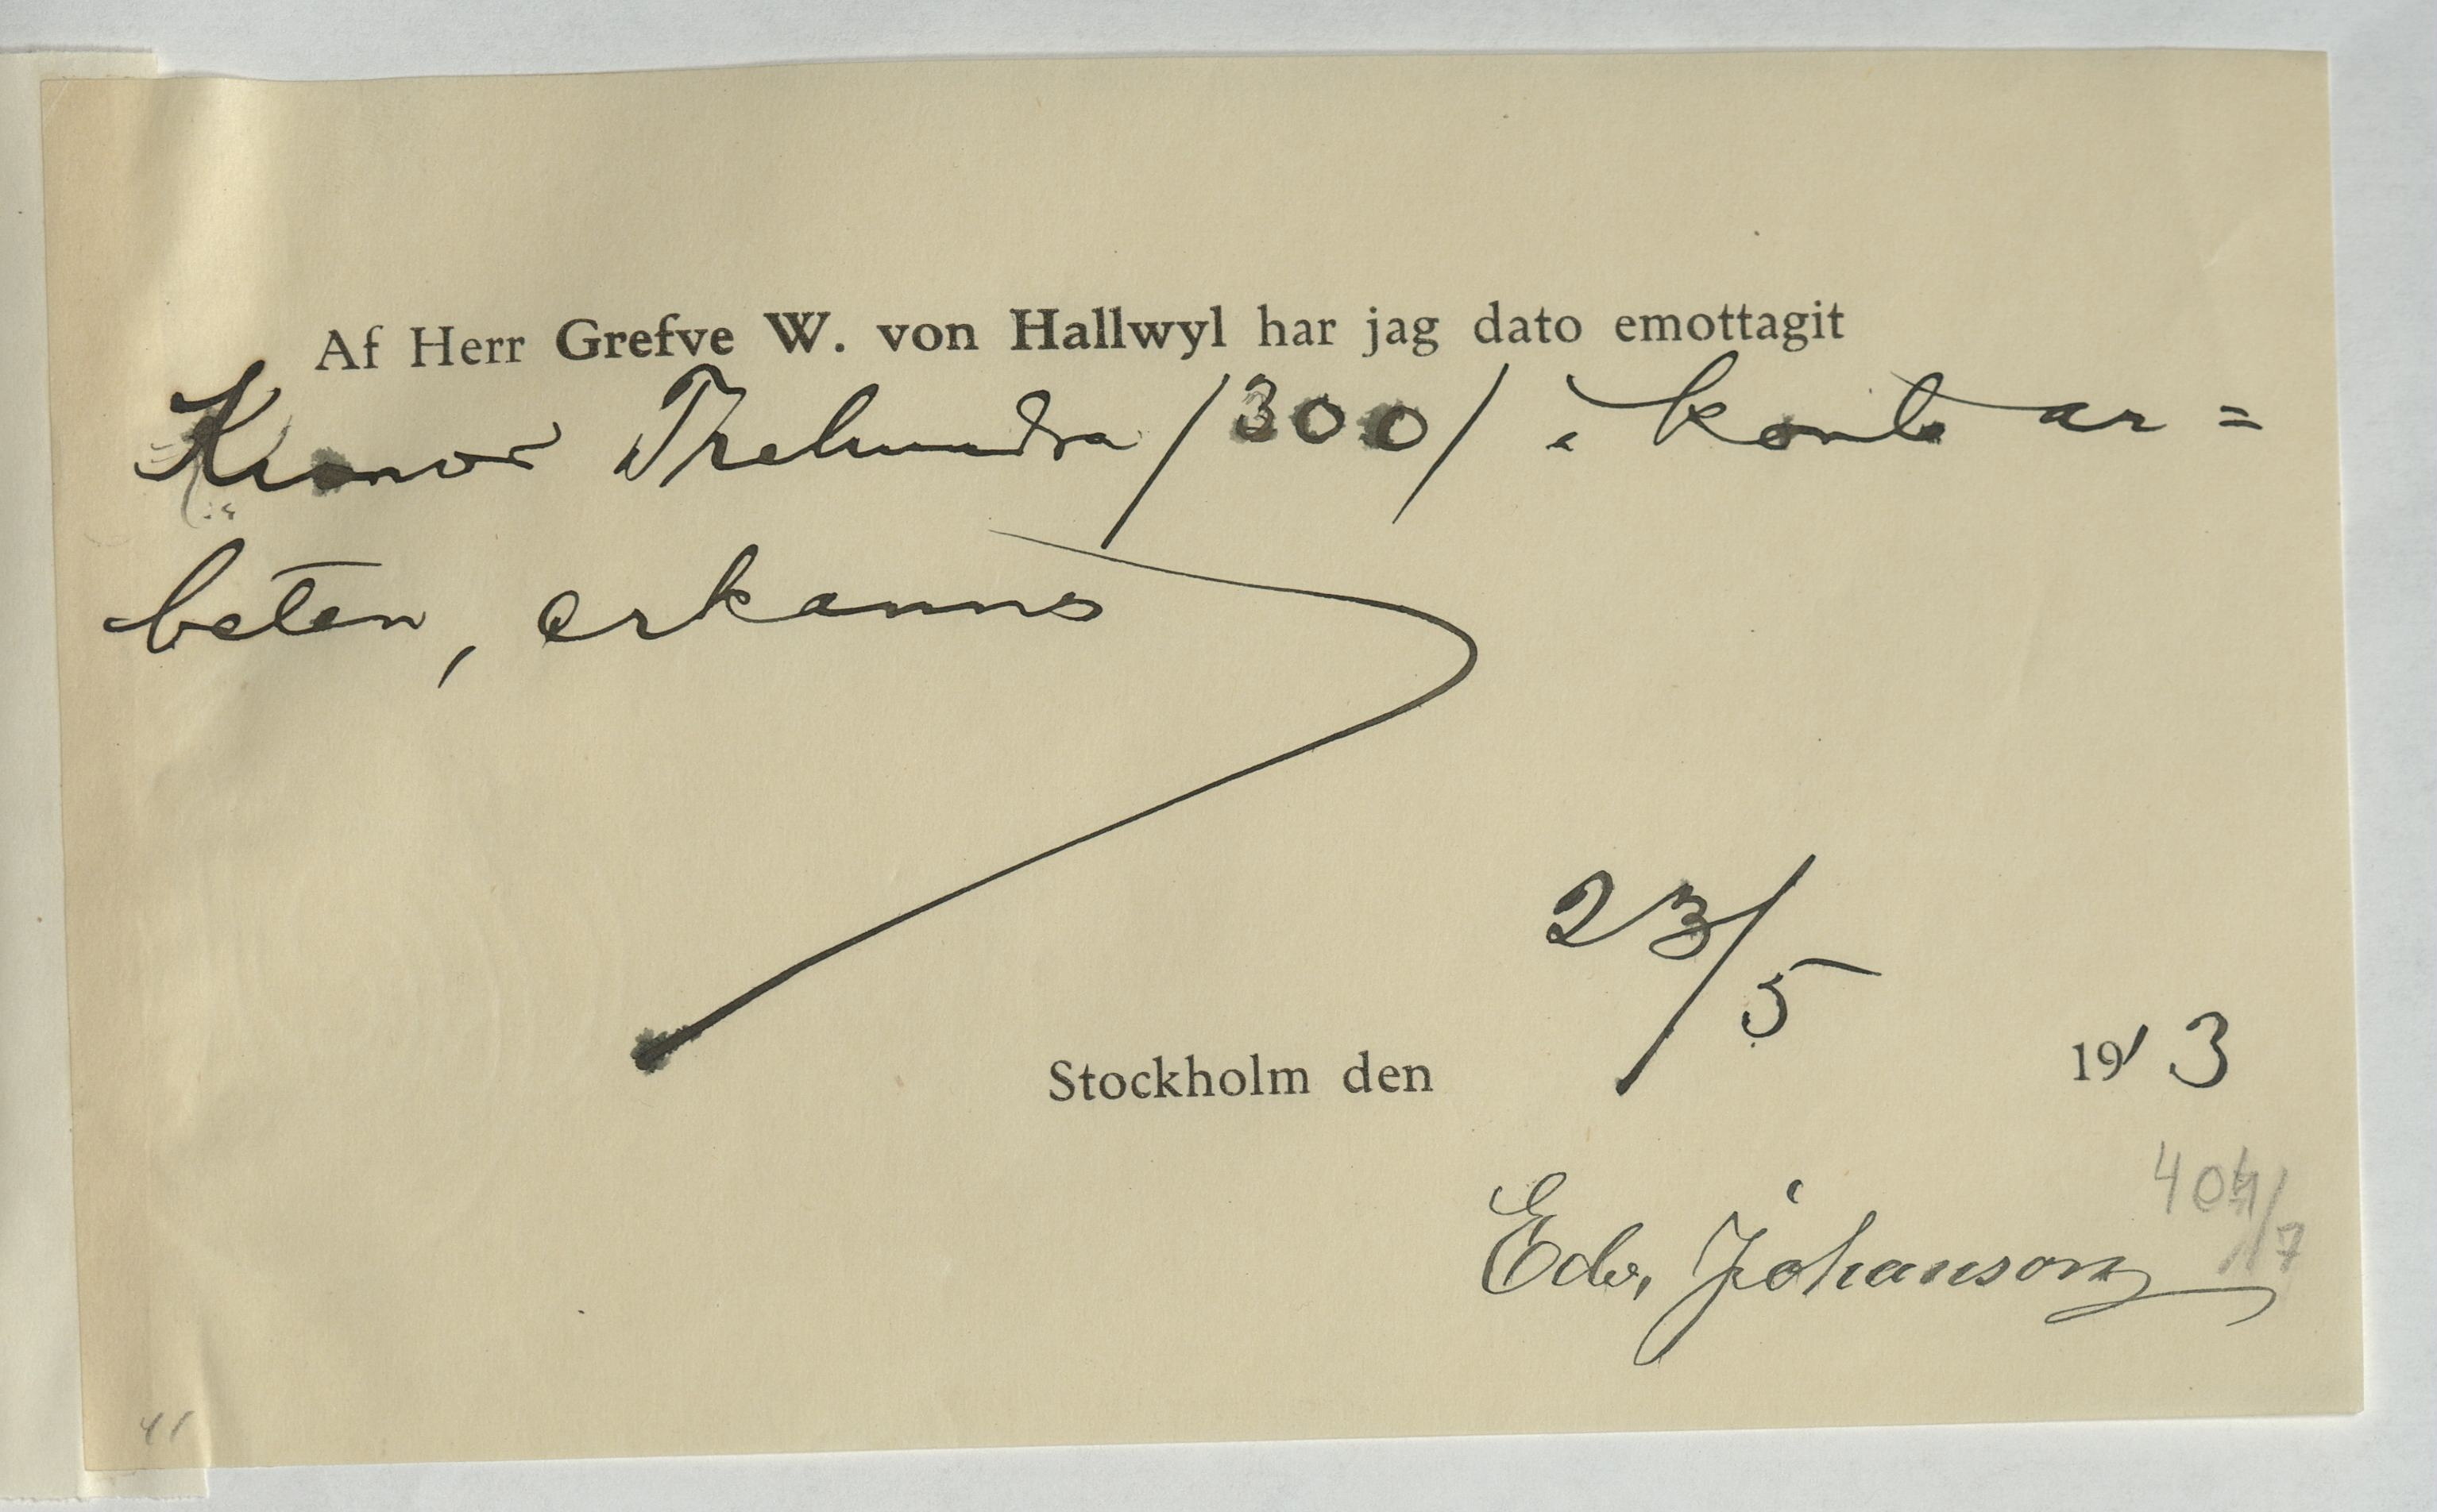 Af Herr Grefve W. von Hallwyl har jag dato emottagit
Kronor Trehundra /300/ à konto ar=
beten, erkännes
23/5
Stockholm den 1913
Edv. Johanson
404/7
41